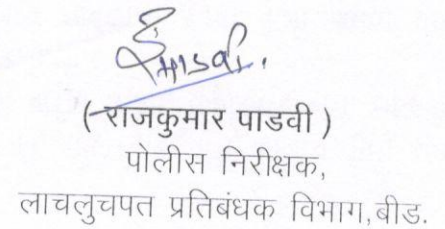 ( राजकुमार पाडवी )
पोलीस निरीक्षक,
लाचलुचपत प्रतिबंधक विभाग,बीड.